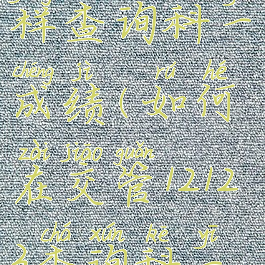 样查询科一
chéng jì rú hé
成绩(如何
zài jiāo guǎn
在交管1212
chá xún kē yī
查询科一